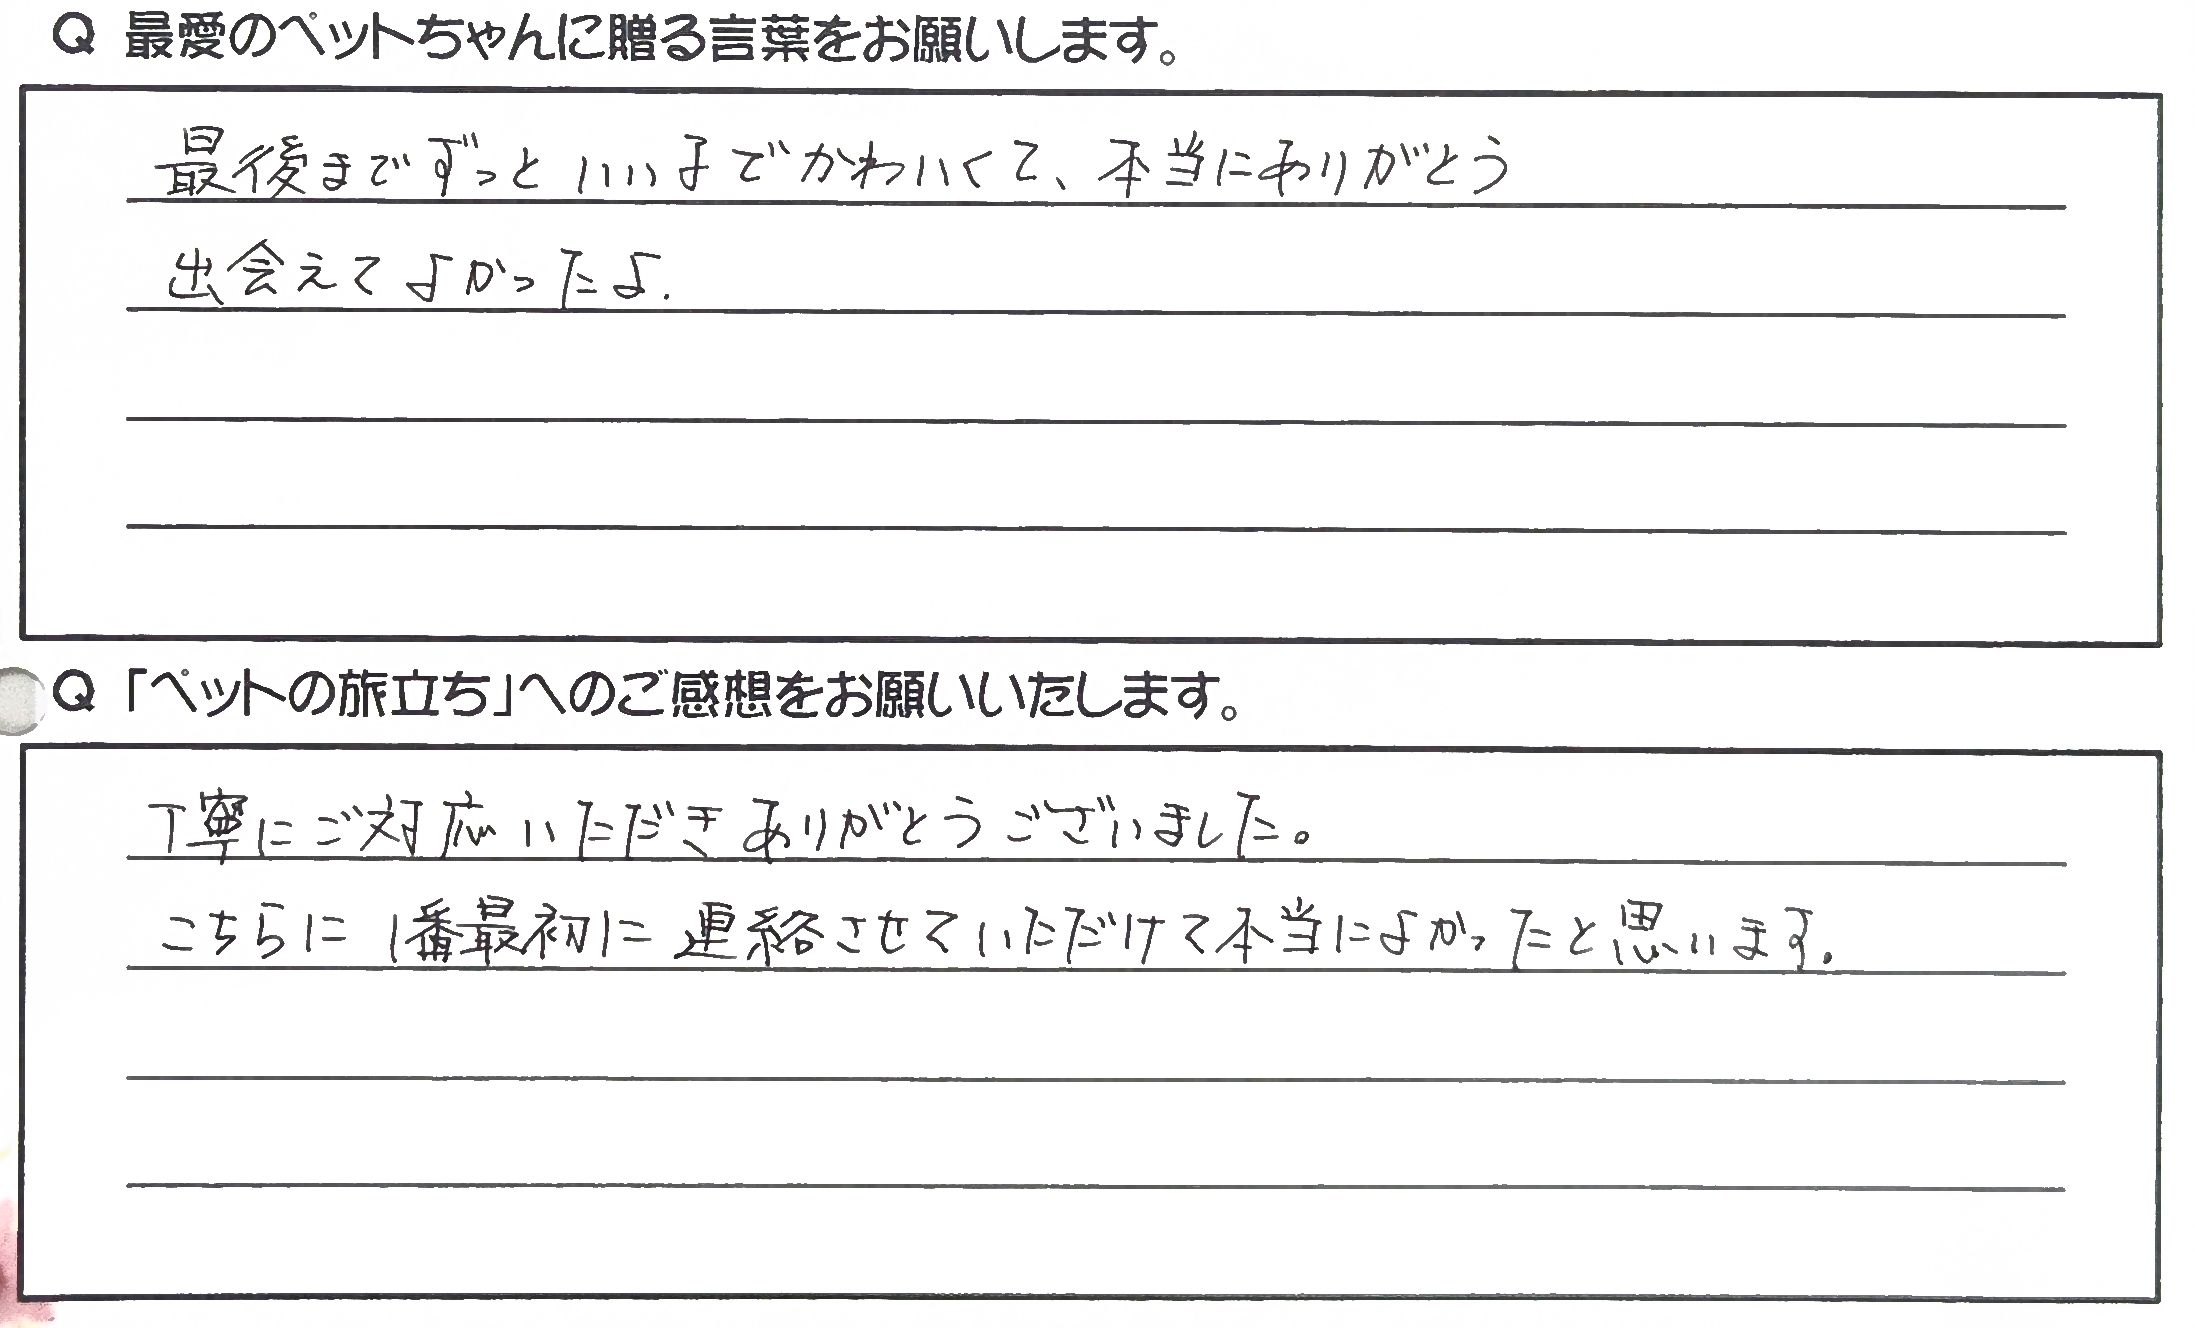 Q 最愛のペットちゃんに贈る言葉をお願いします。
最後までずっといい子でかわいくて、本当にありがとう
出会えてよかったよ.
Q 「ペットの旅立ち」へのご感想をお願いいたします。
丁寧にご対応いただきありがとうございました。
こちらに1番最初に連絡させていただけて本当によかったと思います.